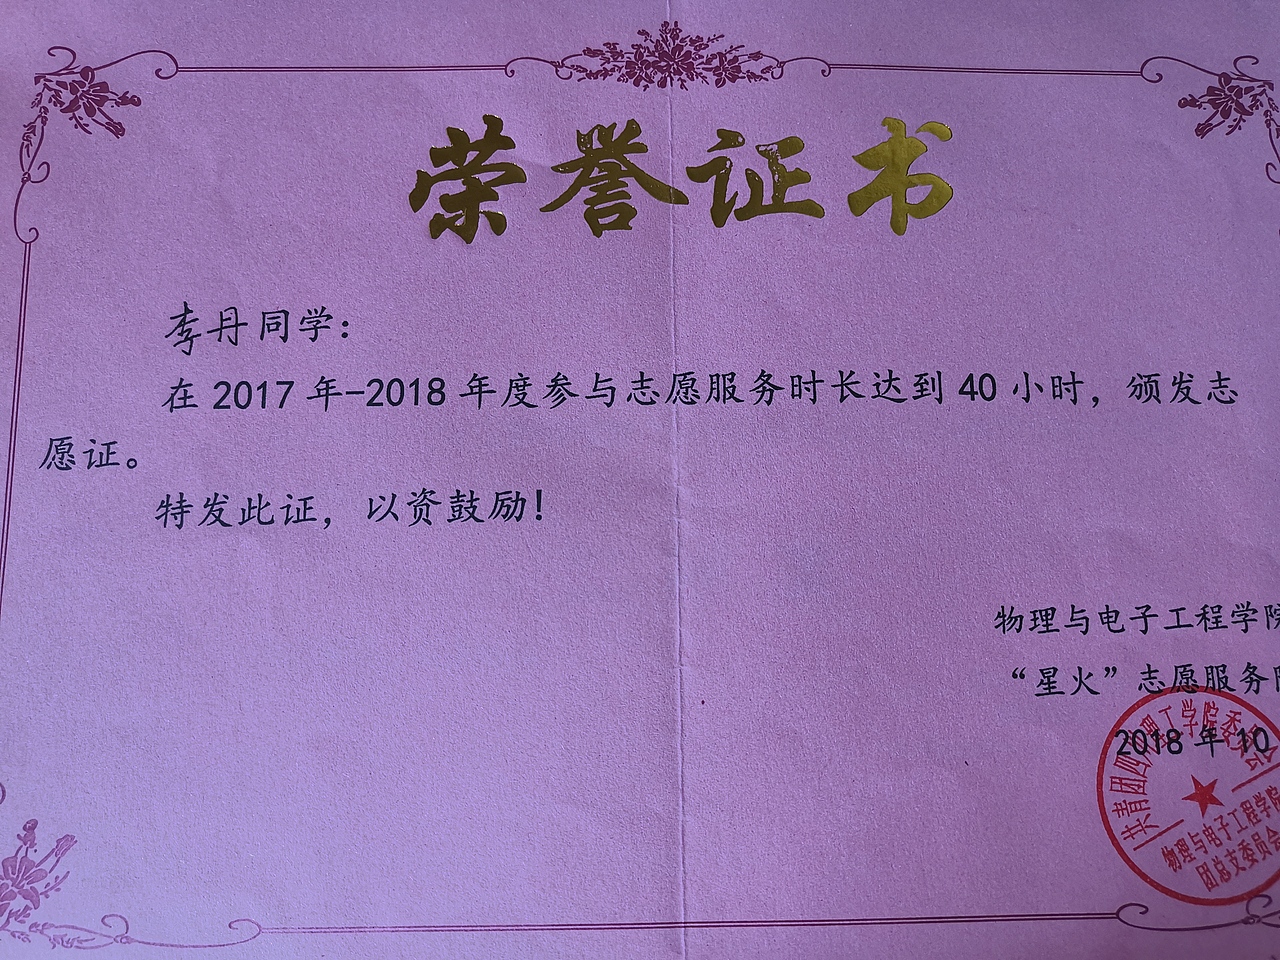 荣誉证书
李丹同学：
在 2017 年-2018 年度参与志愿服务时长达到 40 小时，颁发志
愿证。
特发此证，以资鼓励！
物理与电子工程学院
“星火”志愿服务队
2018 年 10
共青团四川理工学院委员会
物理与电子工程学院
团总支委员会